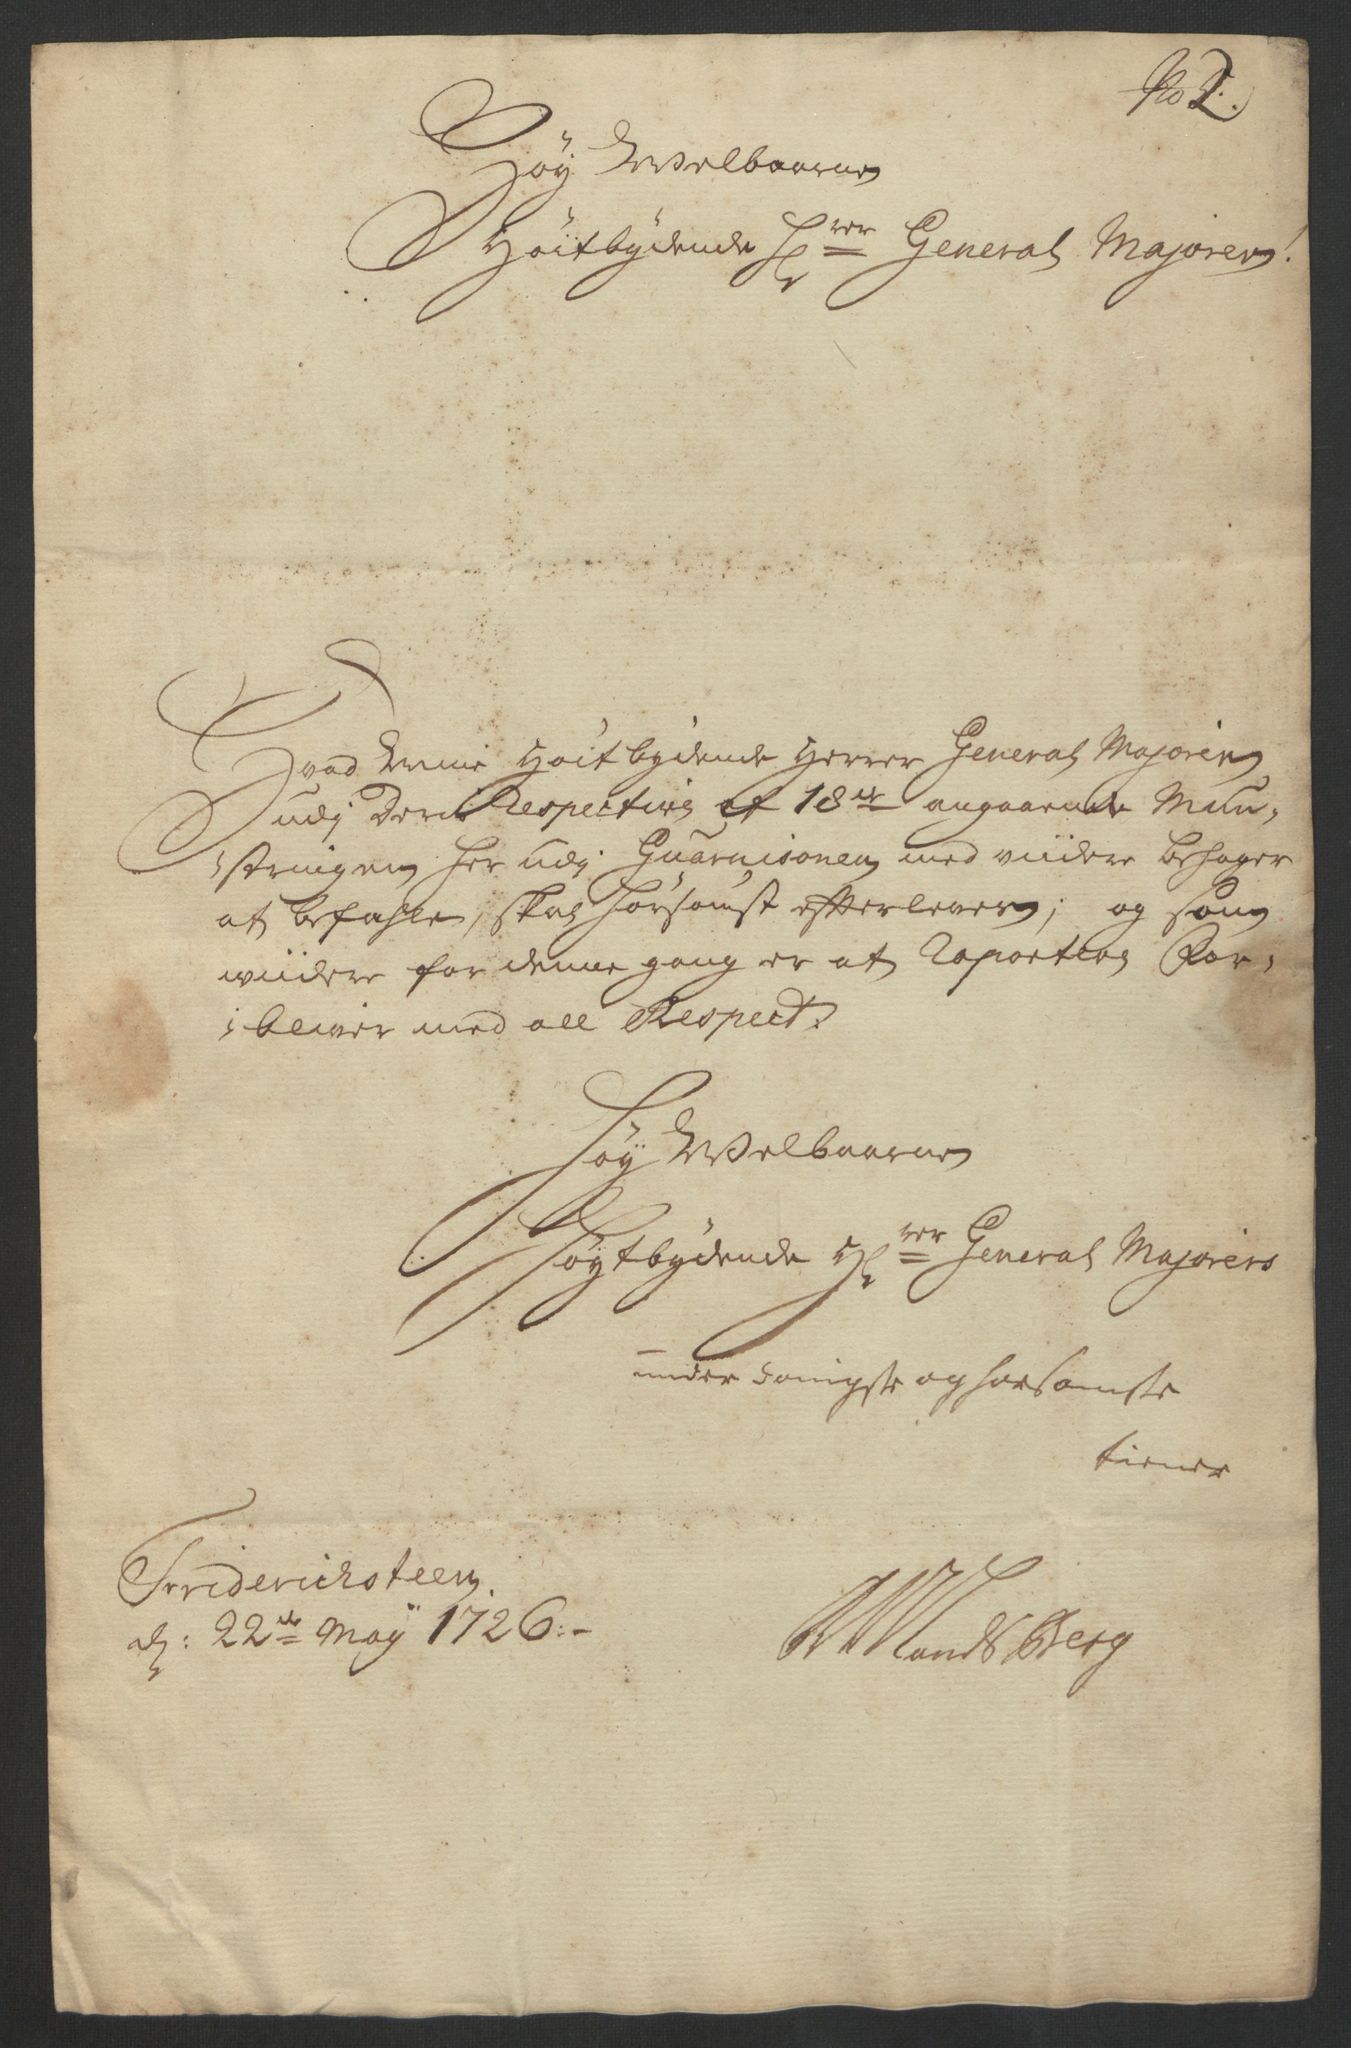 No 2.
Høy Welbaarne
Høitbydende Hr rer General Majoren!
Hvad min Høitbydende Herrer General Majoren
udj Deris Respective af 18de angaaende Mun,
,stringen her udj Guarnisonen med viidere behager
at befahle, skal hørsomst efterleven; og som
viidere for denne gang er at Raportere For,
,bliver med all Respect.
Høy Welbaarne
Høytbydende Hr rer General Majorens
underdanigste og horsomste
tiener
Friderichsteen
d: 22de Maÿ 1726:-
Landsberg